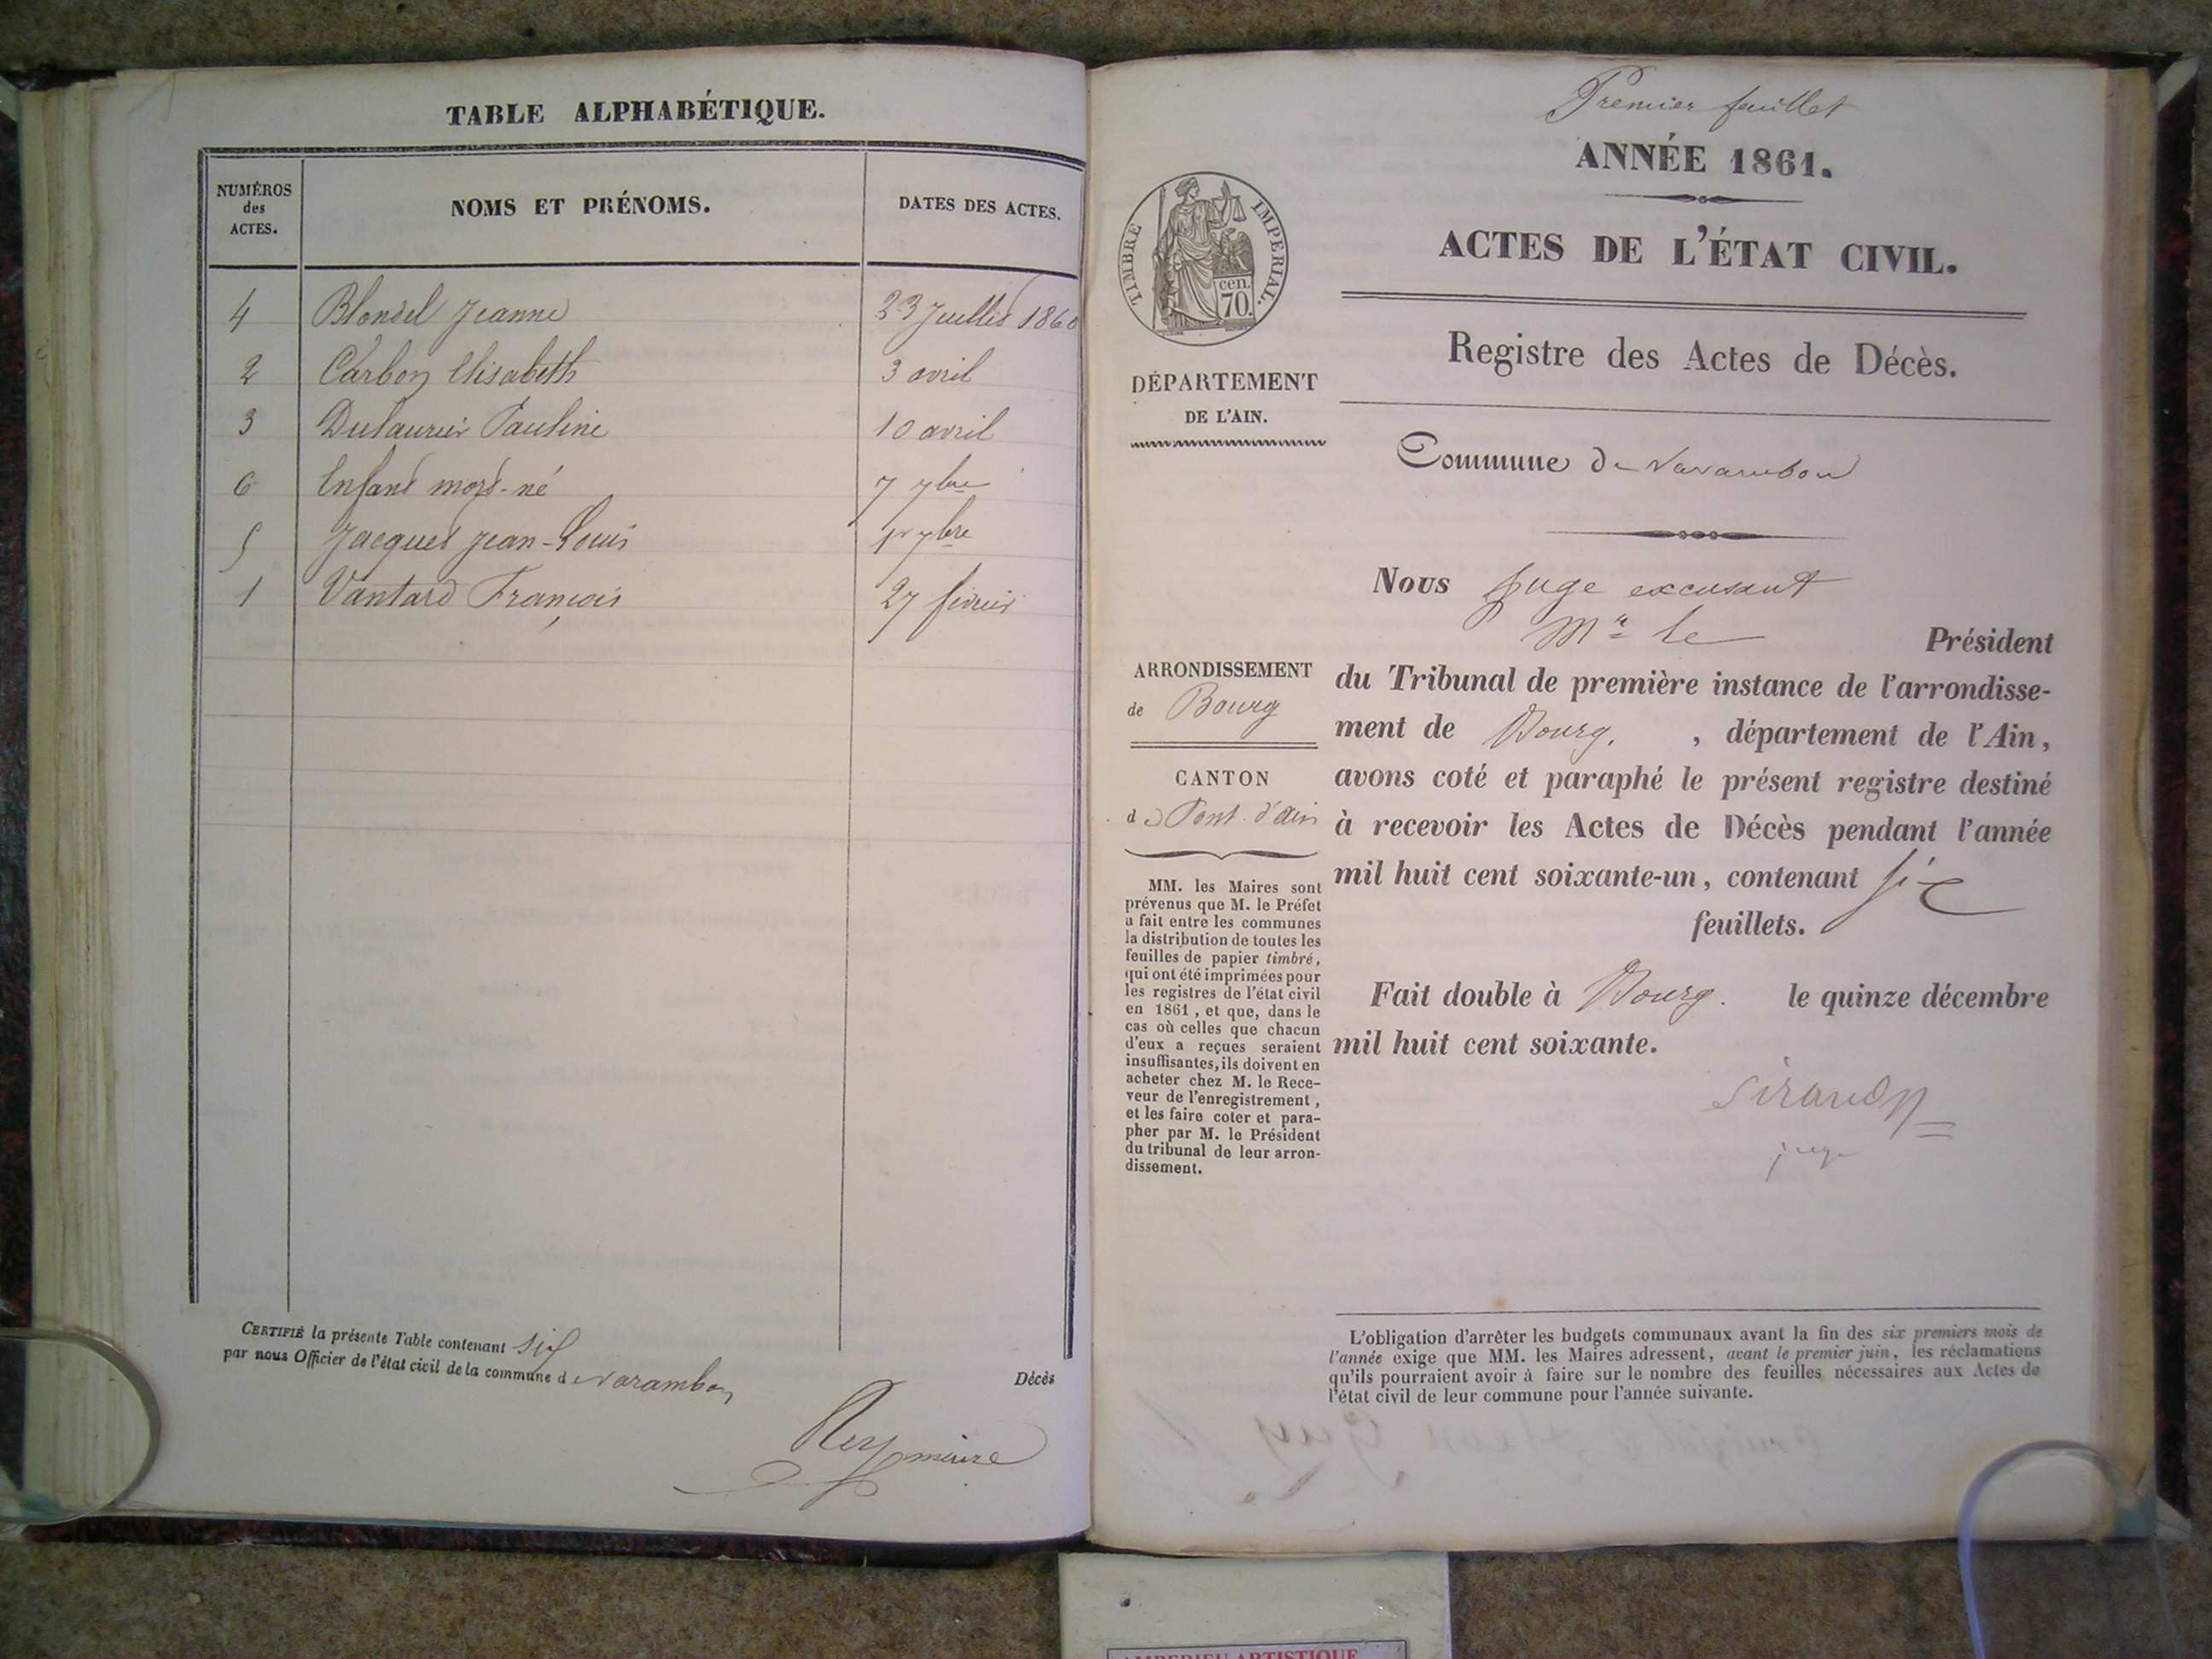 TABLE ALPHABÉTIQUE.
NUMÉROS des ACTES. NOMS ET PRÉNOMS. DATES DES ACTES.
4 Blondel Jeanne 23 Juillet 1860
2 Carbon Elisabeth 3 avril
3 Dulaurier Pauline 10 avril
6 Enfant mort-né 7 7bre
5 Jacques Jean-Louis 1r 7bre
1 Vantard François 27 février
CERTIFIÉ la présente Table contenant six Décès
par nous Officier de l'état civil de la commune de Varambon
maire
Premier feuillet
ANNÉE 1861.
TIMBRE IMPERIAL.
cen.
70.
ACTES DE L'ÉTAT CIVIL.
Registre des Actes de Décès.
DÉPARTEMENT
DE L'AIN.
Commune de Varambon
ARRONDISSEMENT
de Bourg
CANTON
de Pont-d'ain
MM. les Maires sont
prévenus que M. le Préfet
a fait entre les communes
la distribution de toutes les
feuilles de papier timbré,
qui ont été imprimées pour
les registres de l'état civil
en 1861, et que, dans le
cas où celles que chacun
d'eux a reçues seraient
insuffisantes, ils doivent en
acheter chez M. le Rece-
veur de l'enregistrement,
et les faire coter et para-
pher par M. le Président
du tribunal de leur arron-
dissement.
Nous Juge excusant
Mr le Président
du Tribunal de première instance de l'arrondisse-
ment de Bourg, , département de l'Ain,
avons coté et paraphé le présent registre destiné
à recevoir les Actes de Décès pendant l'année
mil huit cent soixante-un, contenant six
feuillets.
Fait double à Bourg. le quinze décembre
mil huit cent soixante.
Sirand
juge
L'obligation d'arrêter les budgets communaux avant la fin des six premiers mois de
l'année exige que MM. les Maires adressent, avant le premier juin, les réclamations
qu'ils pourraient avoir à faire sur le nombre des feuilles nécessaires aux Actes de
l'état civil de leur commune pour l'année suivante.
AMBERIEU ARTISTIQUE